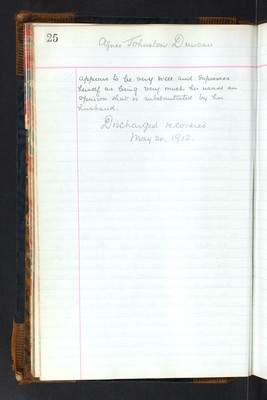 25
Agnes Johnston Duncan
appears to be very well and expresses
herself as being very much her usual an
opinion that is substantiated by her
husband.
Discharged recovered
May 20. 1912.